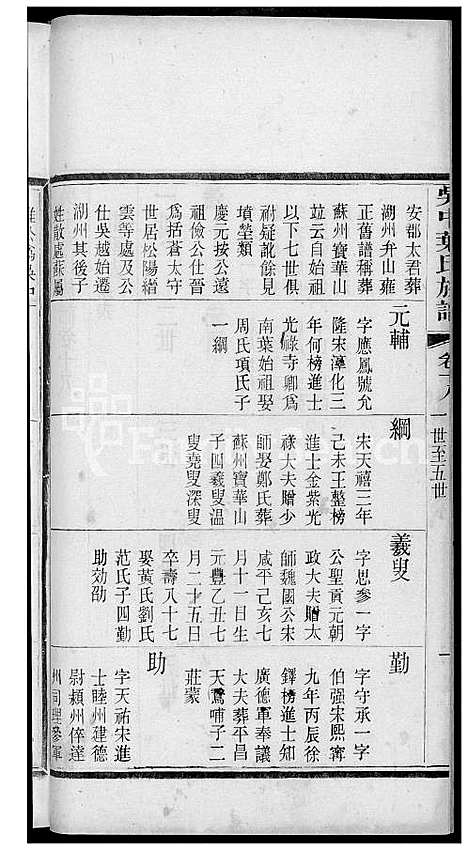 吳中葉氏族譜
卷十八
一世至五世
一
安郡太君葬
湖州弁山雍
正舊譜稱葬
蘇州寶華山
竝云自始祖
以下七世俱
祔疑訛餘見
墳塋類
慶元按公遠
祖儉公仕晉
爲括蒼太守
世居松陽縉
雲等處及公
仕吳越始遷
湖州其後子
姓散處蘇屬
元輔
字應鳳號允
隆宋淳化三
年何榜進士
光祿寺卿爲
南葉始祖娶
周氏項氏子
一綱
綱
宋天禧三年
己未王整榜
進士金紫光
祿大夫贈少
師娶鄭氏葬
蘇州寶華山
子四羲叟溫
叟堯叟深叟
羲叟
字思參一字
公聖貢元朝
政大夫贈太
師魏國公宋
咸平己亥七
月十一日生
元豐乙丑七
月二十五日
卒壽八十七
娶黃氏劉氏
范氏子四勤
助効劭
勤
字守承一字
伯强宋熙寧
九年丙辰徐
鐸榜進士知
廣德軍奉議
大夫葬平昌
天馬㘭子二
莊蒙
助
字天祐宋進
士睦州建德
尉潁州倅達
州司理參軍